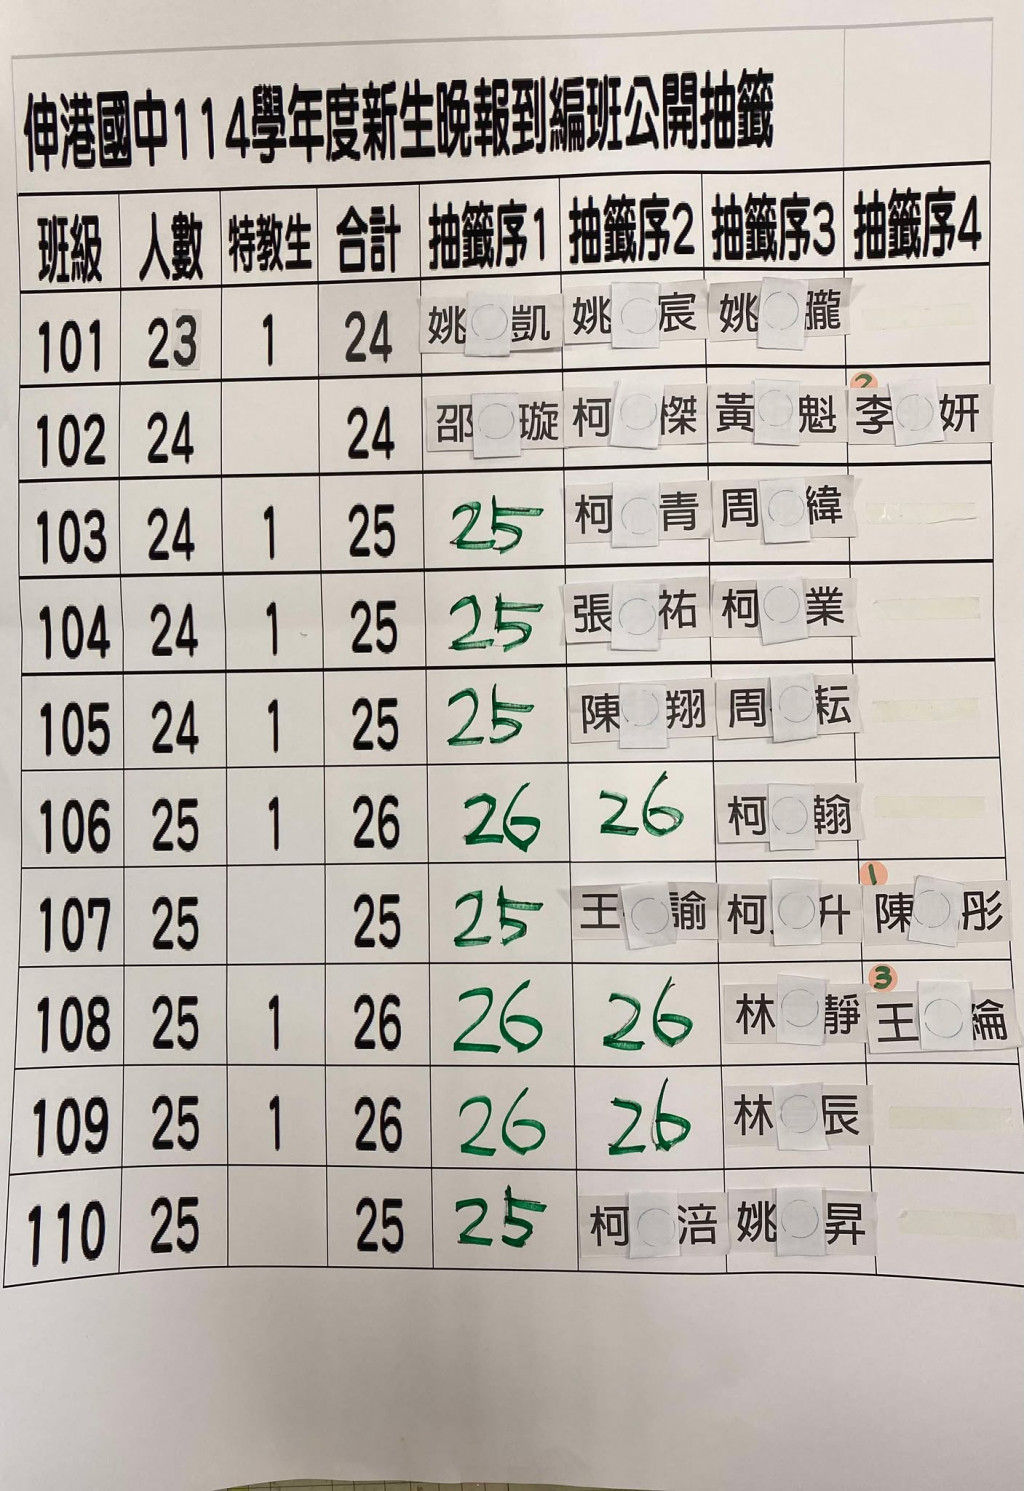 伸港國中114學年度新生晚報到編班公開抽籤
班級 人數 特教生 合計 抽籤序1 抽籤序2 抽籤序3 抽籤序4
101 23 1 24 姚 凱 姚 宸 姚 朧
102 24 24 邵 璇 柯 榤 黃 魁 2 李 妍
103 24 1 25 25 柯 青 周 緯
104 24 1 25 25 張 祐 柯 業
105 24 1 25 25 陳 翔 周 耘
106 25 1 26 26 26 柯 翰
107 25 25 25 王 諭 柯 升 1 陳 彤
108 25 1 26 26 26 林 靜 3 王 綸
109 25 1 26 26 26 林 辰
110 25 25 25 柯 涪 姚 昇